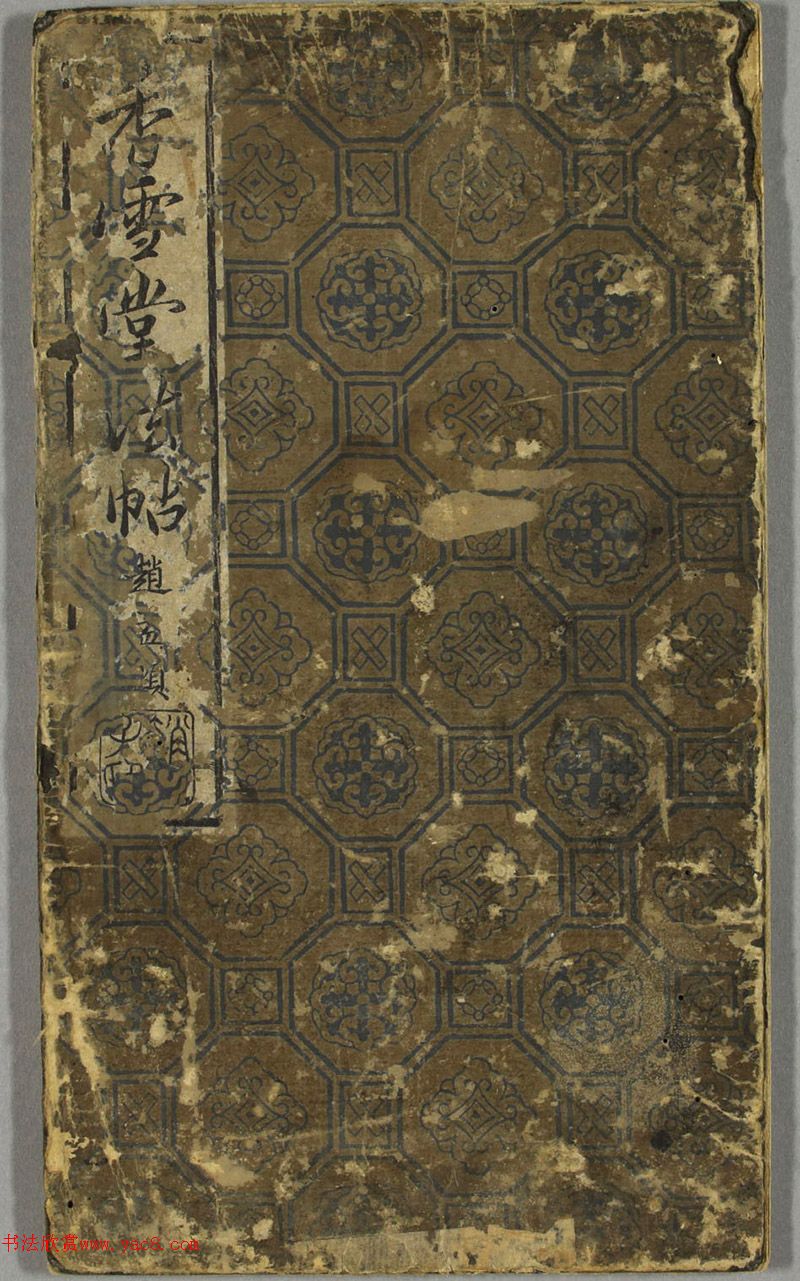 香雪堂法帖
趙五
书法欣赏www.yac8.com